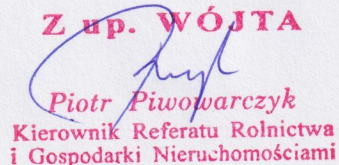 Z up. WÓJTA
Piotr Piwowarczyk
Kierownik Referatu Rolnictwa
i Gospodarki Nieruchomościami